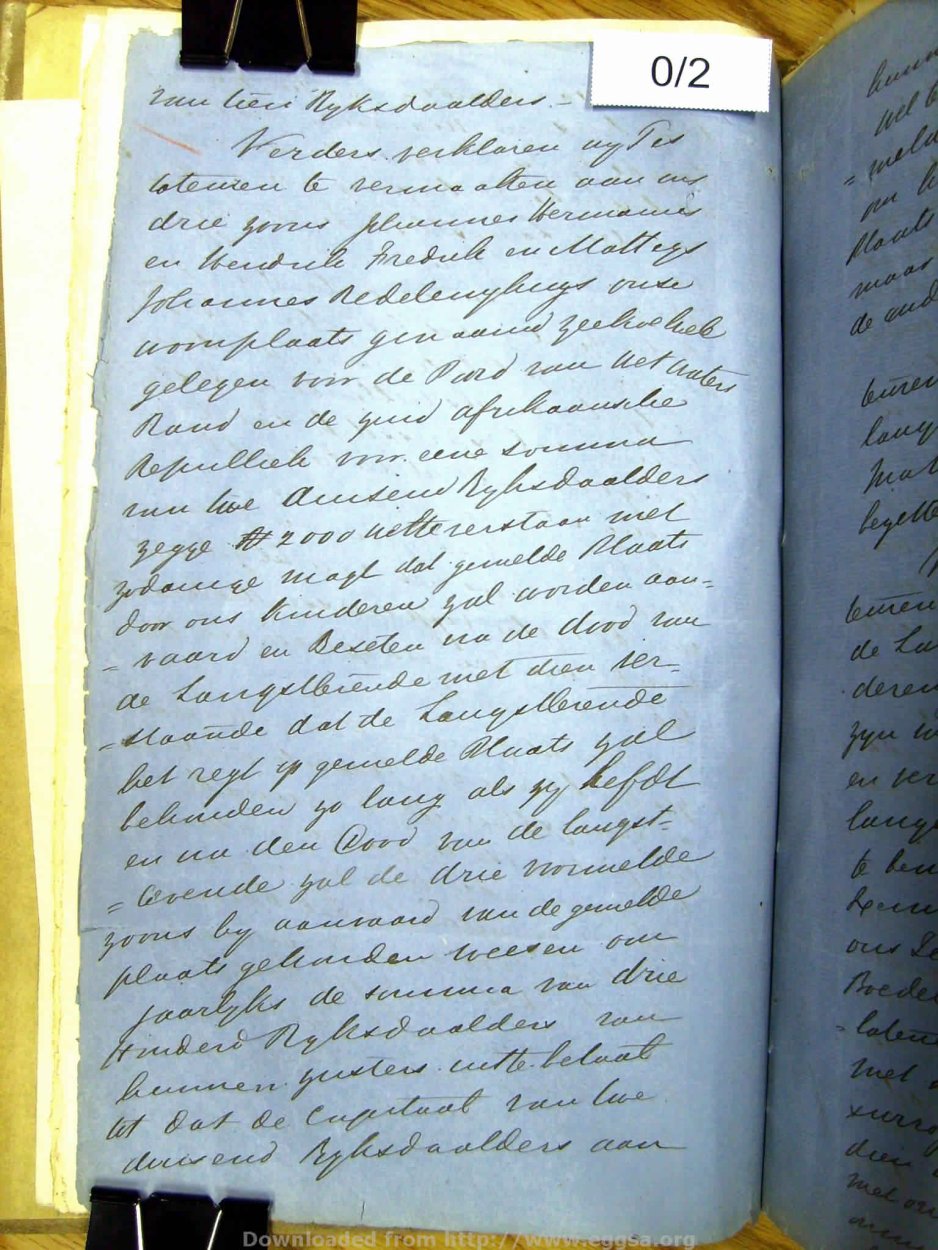 0/2
van tien Ryksdaalders. –
Verders verklaren wy Tes
latenen te vermaaken aan ons
drie zoons Johannes Hermanus
en Hendrik Fredrik en Mattys
Johannes Redelenghuys onse
woonplaats genaamd zeekoe
gelegen voor de Poord van het waters
Rand en de zuid afrikaansche
Republiek voor eene somma
van twe duisend Ryksdaalders
zegge 2000 verstaan met
zodanige magt dat gemelde Plaats
door ons kinderen zal worden aan=
= vaard en Beseten na de dood van
de Langstlevende met dien ver=
= staande dat de Langstlevende
het regt op gemelde Plaats zal
behouden zo lang als zy Leefdt
en na den Dood van de langst=
= levende zal de drie voormelde
zoons by aanvaard van de gemelde
plaats gehouden weesen om
jaarlyks de somma van drie
Honderd Ryksdaalders van
hunnen zusters uitte betaal
tot dat de Capitaal van twe
duisend Ryksdaalders aan
Downloaded from http://www.eggsa.org